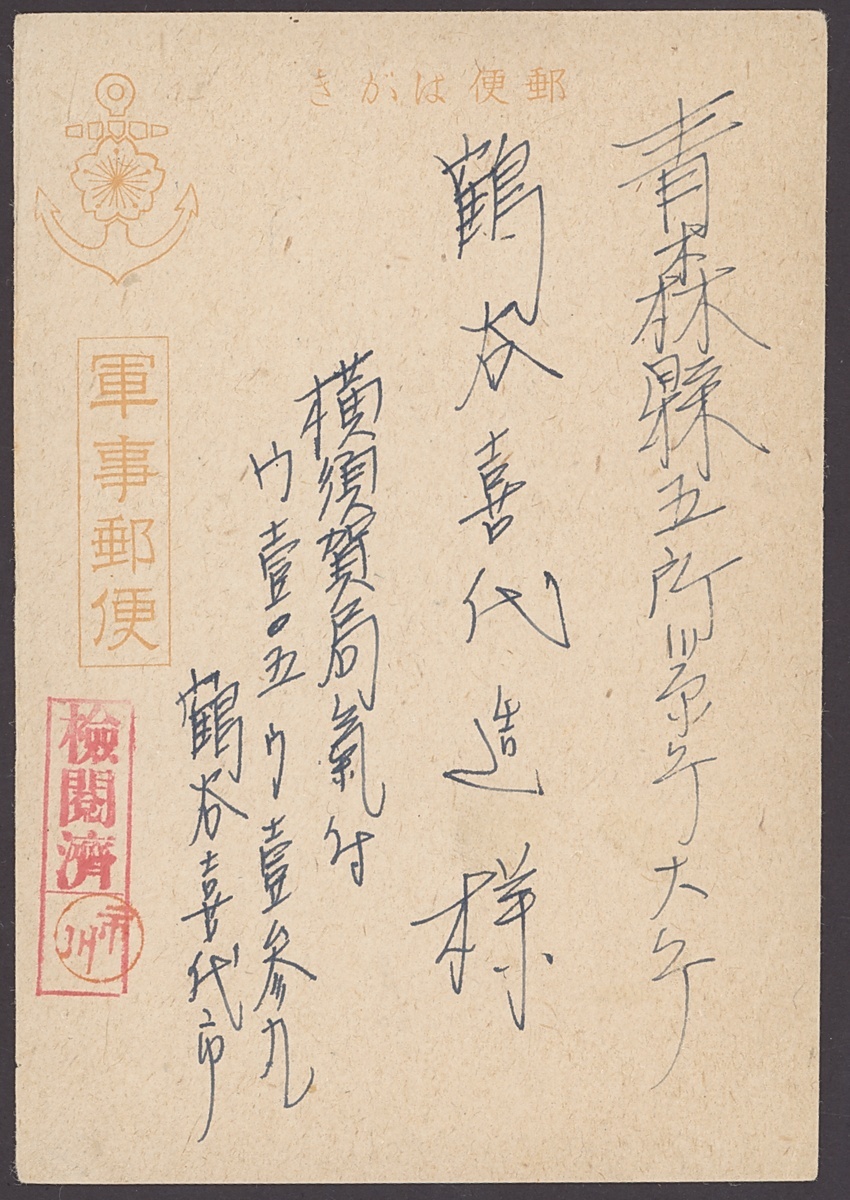 郵便はがき
青森縣五所川原町大町
鶴谷喜代造様
横須賀局氣付
ウ壹〇五ウ壹参九
鶴谷喜代市
軍事郵便
檢閲濟
市川